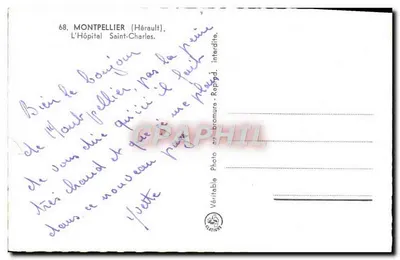 68. MONTPELLIER (Hérault).
L'Hôpital Saint-Charles.
Bien le bonjour
de Montpellier, pas la peine
de vous dire qu'ici il fait
très chaud et que je me plais
dans ce nouveau pays
Yvette
Véritable Photo au bromure - Reprod. interdite.
CARPHILA